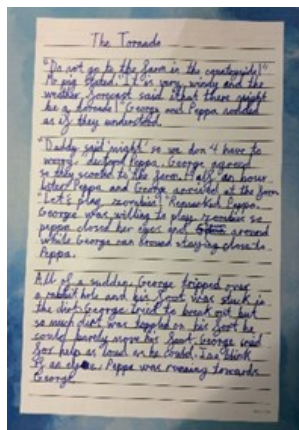 The Tornado
"Do not go to the farm in the countryside!"
Mr pig stated. "It is very windy and the
weather forecast said that there might
be a tornado!" George and Peppa nodded
as if they understood.
"Daddy said 'might' so we don't have to
worry" declared Peppa. George agreed
so they scooted to the farm. Half an hour
later Peppa and George arrived at the farm.
"Let's play zombies!" Remarked Peppa.
George was willing to play zombies so
peppa closed her eyes and around
while George ran around staying close to
Peppa.
All of a sudden, George tripped over
a rabbit hole and his foot was stuck in
the dirt. George tried to break out but
so much dirt was toppled on his foot he
could barely move his foot. George said
for help as loud as he could. In a blink
of an eye, Peppa was running towards
George.